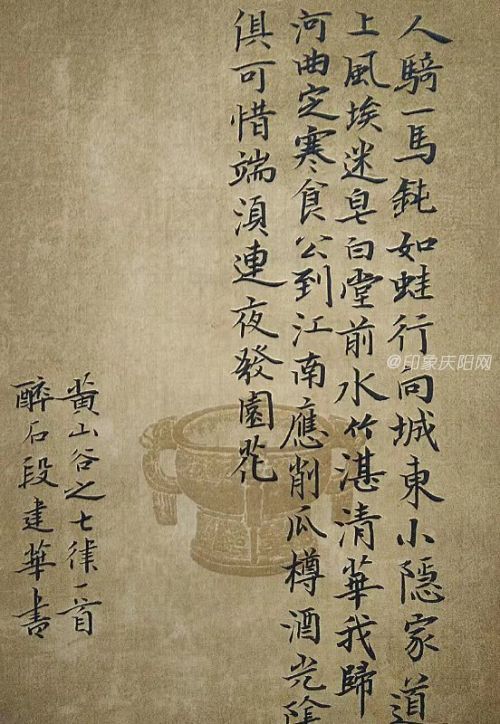 人騎一馬鈍如蛙行向城東小隱家道
上風埃迷皂白堂前水竹湛清華我歸
河曲定寒食公到江南應削瓜樽酒光陰
俱可惜端須連夜發園花
黄山谷之七律一首
醉石段建華書
@印象庆阳网